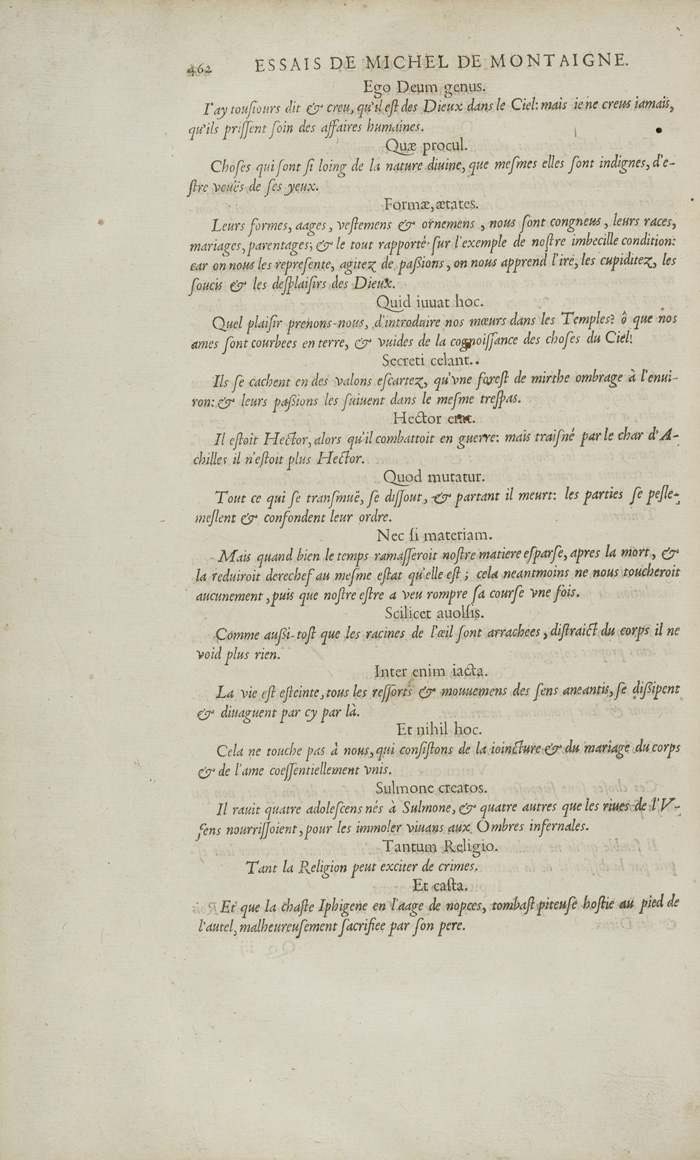 462 ESSAIS DE MICHEL DE MONTAIGNE.
Ego Deum genus.
I'ay touſiours dit & creu, qu'il eſt des Dieux dans le Ciel: mais ie ne creus iamais,
qu'ils priſſent ſoin des affaires humaines.
Quæ procul.
Choſes qui ſont ſi loing de la nature diuine, que meſmes elles ſont indignes, d'e-
ſtre veuës de ſes yeux.
Formæ, ætates.
Leurs formes, aages, veſtemens & ornemens, nous ſont congneus, leurs races,
mariages, parentages; & le tout rapporté ſur l'exemple de noſtre imbecille condition:
car on nous les repreſente, agitez de paſſions, on nous apprend l'ire, les cupiditez, les
ſoucis & les deſplaiſirs des Dieux.
Quid iuuat hoc.
Quel plaiſir prenons-nous, d'introduire nos mœurs dans les Temples? ô que nos
ames ſont courbees en terre, & vuides de la cognoiſſance des choſes du Ciel!
Secreti celant..
Ils ſe cachent en des valons eſcartez, qu'vne foreſt de mirthe ombrage à l'enui-
ron: & leurs paſſions les ſuiuent dans le meſme treſpas.
Hector erat.
Il eſtoit Hector, alors qu'il combattoit en guerre: mais traiſné par le char d'A-
chilles il n'eſtoit plus Hector.
Quod mutatur.
Tout ce qui ſe tranſmuë, ſe diſſout, & partant il meurt: les parties ſe peſle-
meſlent & confondent leur ordre.
Nec ſi materiam.
Mais quand bien le temps ramaſſeroit noſtre matiere eſparſe, apres la mort, &
la reduiroit derechef au meſme eſtat qu'elle eſt; cela neantmoins ne nous toucheroit
aucunement, puis que noſtre eſtre a veu rompre ſa courſe vne fois.
Scilicet auolſis.
Comme auſſi-toſt que les racines de l'œil ſont arrachees, diſtraict du corps il ne
void plus rien.
Inter enim iacta.
La vie eſt eſteinte, tous les reſſorts & mouuemens des ſens aneantis, ſe diſſipent
& diuaguent par cy par là.
Et nihil hoc.
Cela ne touche pas à nous, qui conſiſtons de la ioincture & du mariage du corps
& de l'ame coeſſentiellement vnis.
Sulmone creatos.
Il rauit quatre adoleſcens nés à Sulmone, & quatre autres que les riues de l'V-
fens nourriſſoient, pour les immoler viuans aux Ombres infernales.
Tantum Religio.
Tant la Religion peut exciter de crimes.
Et caſta.
Et que la chaſte Iphigene en l'aage de nopces, tombaſt piteuſe hoſtie au pied de
l'autel, malheureuſement ſacrifiee par ſon pere.